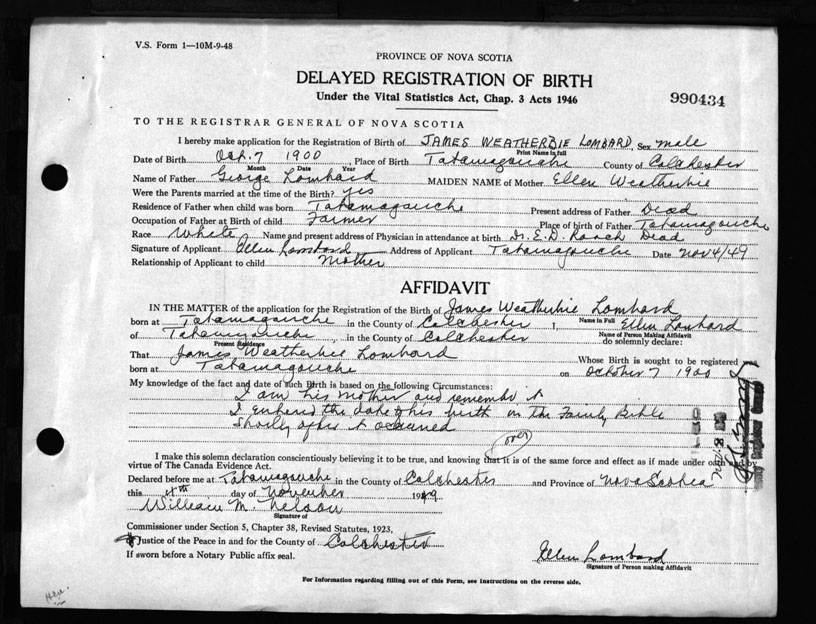 V.S. Form 1—10M-9-48
PROVINCE OF NOVA SCOTIA
DELAYED REGISTRATION OF BIRTH
Under the Vital Statistics Act, Chap. 3 Acts 1946
990434
TO THE REGISTRAR GENERAL OF NOVA SCOTIA
I hereby make application for the Registration of Birth of JAMES WEATHERBIE LOMBARD, Sex male
Print Name in full
Date of Birth Oct. 7 1900, Place of Birth Tatamagouche County of Colchester
Month Date Year
Name of Father George Lombard MAIDEN NAME of Mother Ellen Weatherbie
Were the Parents married at the time of the Birth? yes
Residence of Father when child was born Tatamagouche Present address of Father Dead
Occupation of Father at Birth of child Farmer Place of birth of Father Tatamagouche
Race White Name and present address of Physician in attendance at birth Dr. E. D. Roach Dead
Signature of Applicant Ellen Lombard Address of Applicant Tatamagouche Date Nov 4/49
Relationship of Applicant to child Mother
AFFIDAVIT
IN THE MATTER of the application for the Registration of the Birth of James Weatherbie Lombard
Name in Full
born at Tatamagouche in the County of Colchester I, Ellen Lombard
Name of Person Making Affidavit
of Tatamagouche, in the County of Colchester do solemnly declare:
Present Residence
That James Weatherbie Lombard Whose Birth is sought to be registered
born at Tatamagouche on October 7 1900
My knowledge of the fact and date of such Birth is based on the following Circumstances:
I am his mother and remember it
I entered the date of his birth in the Family Bible
Shortly after it occurred
(over)
I make this solemn declaration conscientiously believing it to be true, and knowing that it is of the same force and effect as if made under oath and by
virtue of The Canada Evidence Act.
Declared before me at Tatamagouche in the County of Colchester and Province of Nova Scotia
this 4th day of November 1949
William M. Nelson
Signature of
Commissioner under Section 5, Chapter 38, Revised Statutes, 1923,
or Justice of the Peace in and for the County of Colchester
If sworn before a Notary Public affix seal.
Ellen Lombard
Signature of Person making Affidavit
For Information regarding filling out of this Form, see instructions on the reverse side.